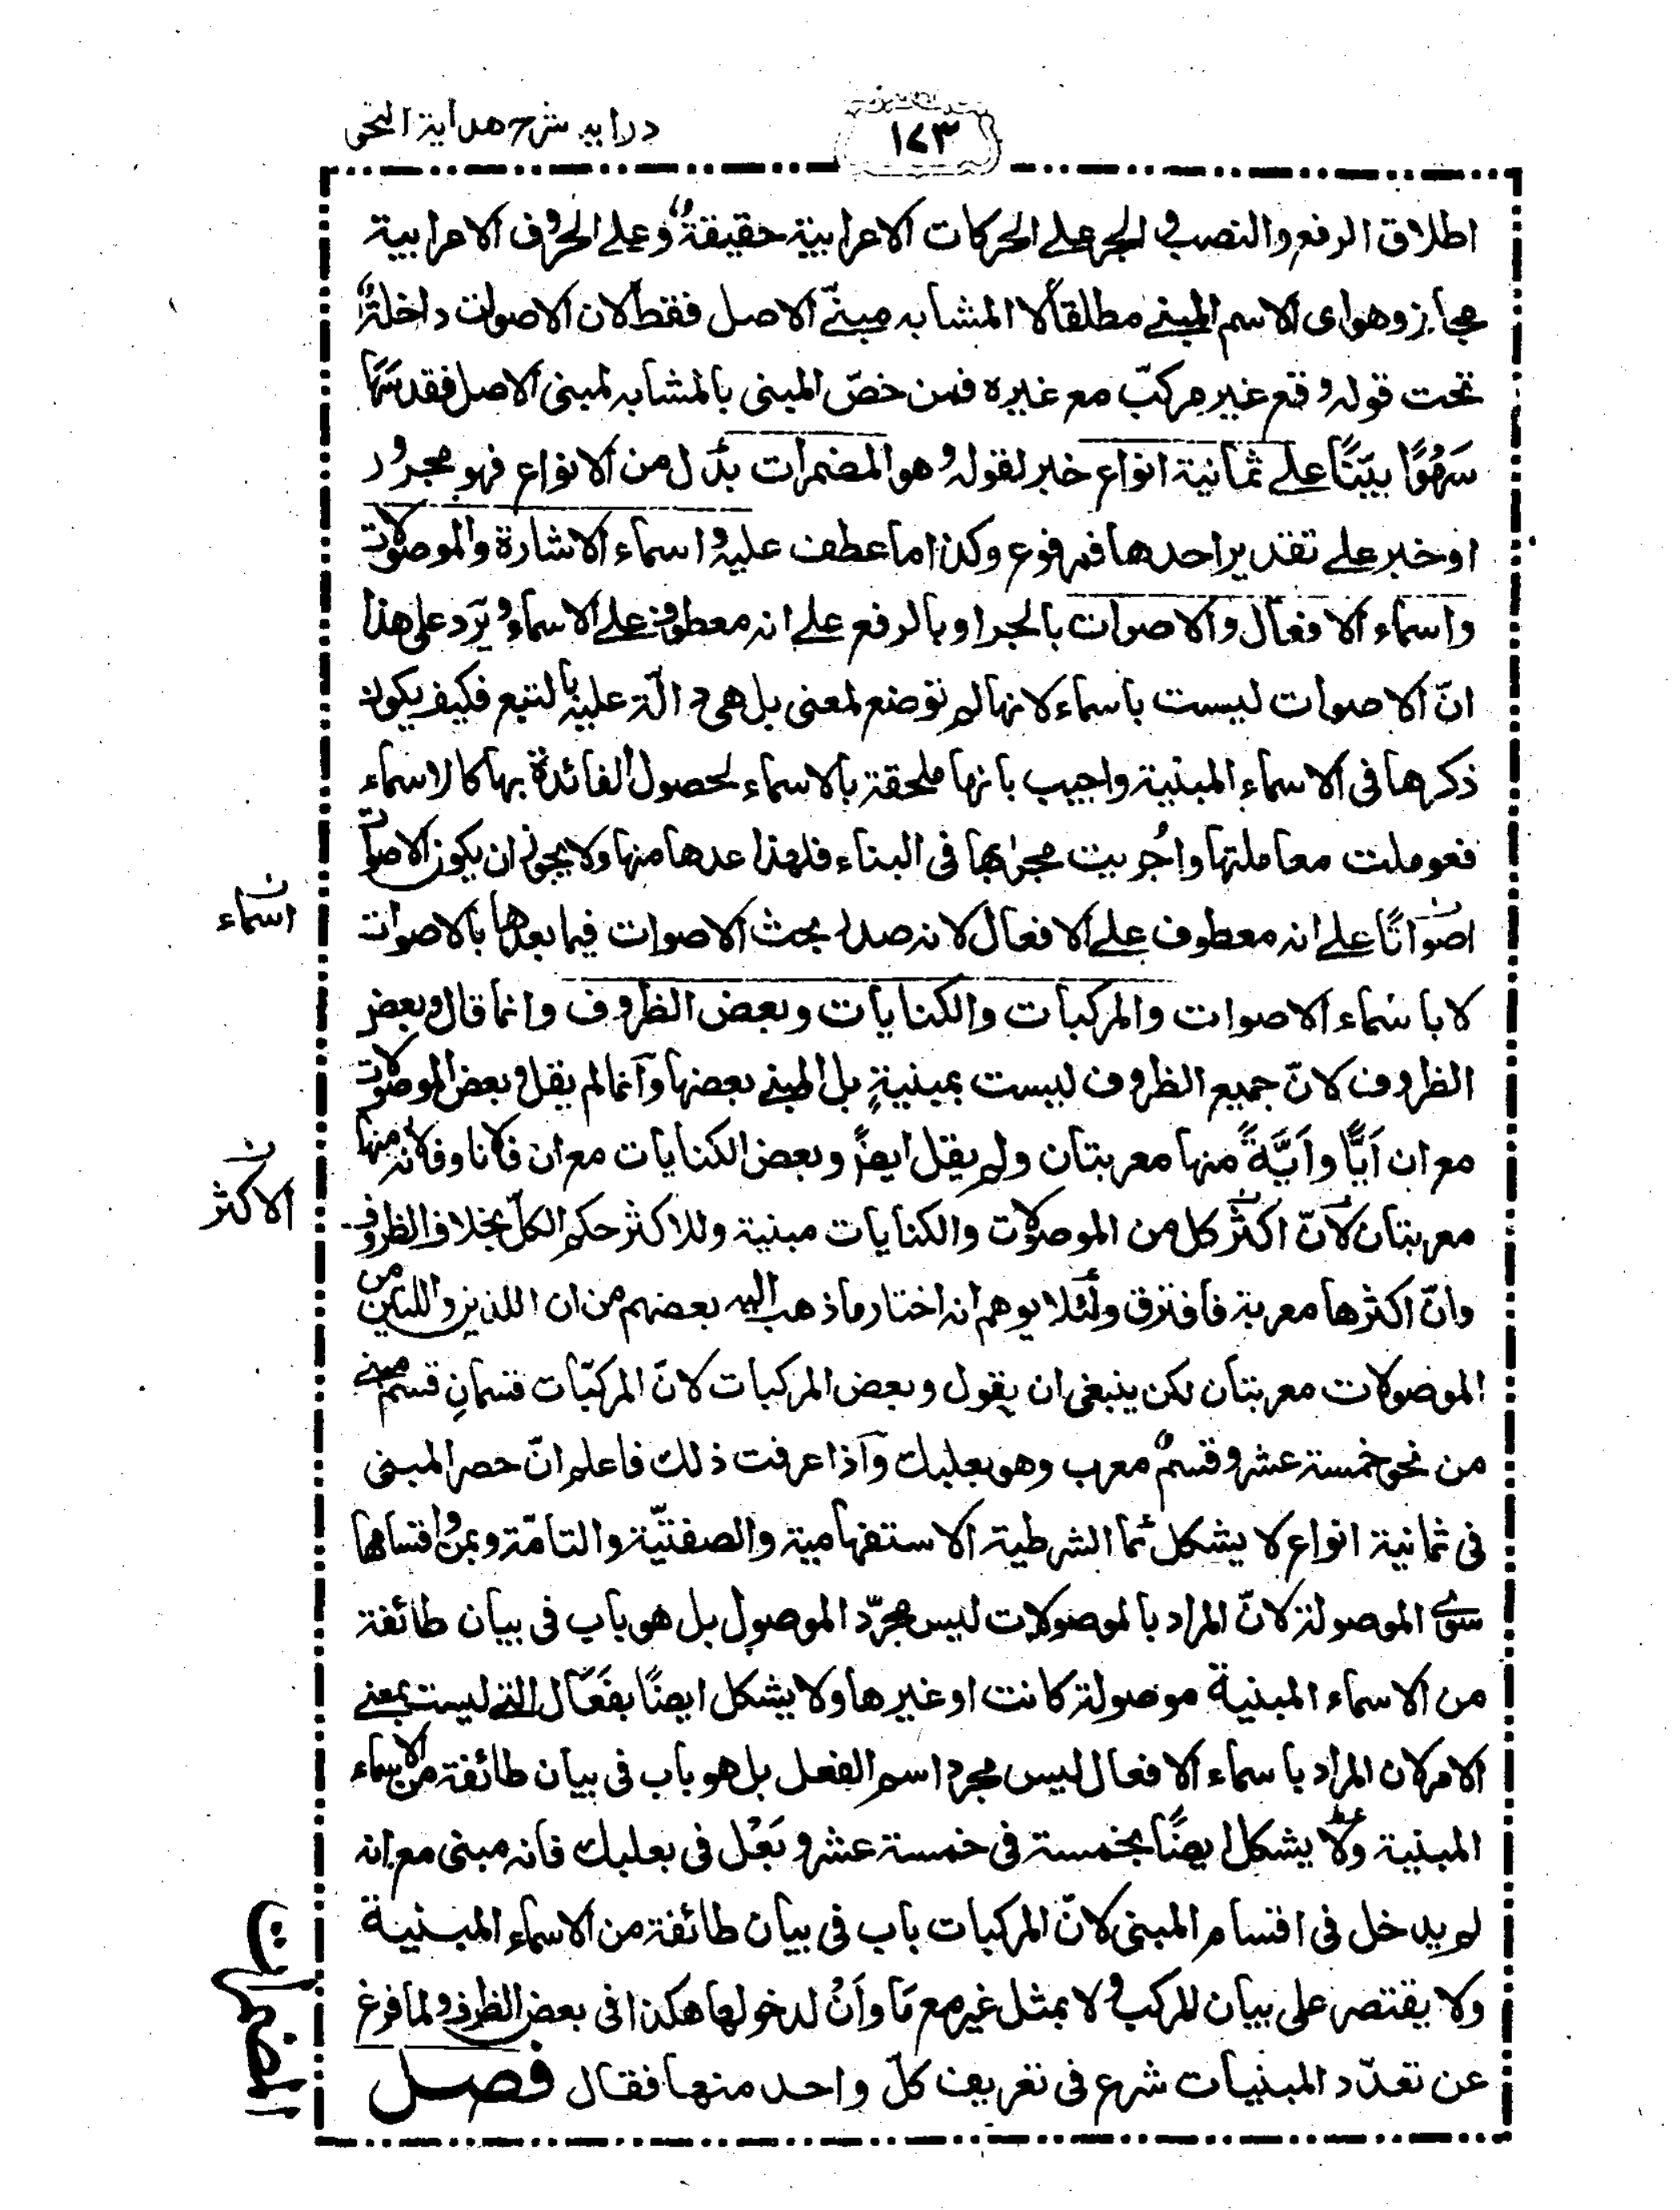 درايه شرح هداية النحو
١٧٣
اطلاق الرفع والنصب و الجر على الحركات الاعرابية حقيقة و على الحروف الاعرابية
مجاز وهو اى الاسم المبنى مطلقا لا المشابه مبنى الاصل فقط لان الاصوات داخلة
تحت قوله وقع غير مركّب مع غيره فمن خصّ المبنى بالمشابه لمبنى الاصل فقد سَهَا
سَهْوًا بيّنًا على ثمانية انواع خبر لقوله و هو المضمرات بدل من الانواع فهو مجرور
او خبر على تقدير احدها فمرفوع وكذا ما عطف عليه و اسماء الاشارة والموصولات
واسماء الافعال والاصوات بالجر او بالرفع على انه معطوف على الاسماء و يَرد على هذا
انّ الاصوات ليست باسماء لانها لم توضع لمعنى بل هى دالّة عليه بالتبع فكيف يكون
ذكرها فى الاسماء المبنية واجيب بانها ملحقة بالاسماء لحصول الفائدة بها كالاسماء
فعوملت معاملتها واُجريت مجراها فى البناء فلهذا عدها منها ولا يجوز ان يكون الاصوات
اصواتًا على انه معطوف على الافعال لانه صدر بحث الاصوات فيما بعدها بالاصوات
لا باسماء الاصوات والمركبات والكنايات وبعض الظروف وانما قال وبعض
الظروف لانّ جميع الظروف ليست بمبنيةٍ بل المبنى بعضها وآنما لم يقل وبعض الموصولات
مع ان اَيًّا واَيَّةً منها معربتان ولم يقل ايضًا وبعض الكنايات مع ان فلانا وفلانة منها
معربتان لانّ اكثر كل من الموصولات والكنايات مبنية وللاكثر حكم الكلّ بخلاف الظروف
وانّ اكثرها معربة فافترق ولئلا يوهم انه اختار ما ذهب اليه بعضهم من ان اللذين واللتين من
الموصولات معربتان لكن ينبغى ان يقول وبعض المركبات لانّ المركبّات قسمانِ قسم مبنى
من نحو خمسة عشر و قسمٌ معرب وهو بعلبك وآذا عرفت ذلك فاعلم انّ حصر المبنى
فى ثمانية انواع لا يشكل بما الشرطية الاستفهامية والصفتيّة والتامّة وبمن و اقسامها
سوى الموصولة لانّ المراد بالموصولات ليس مجرّد الموصول بل هو باب فى بيان طائفة
من الاسماء المبنية موصولة كانت او غيرها ولا يشكل ايضًا بفَعَال التى ليست بمعنى
الامر لان المراد باسماء الافعال ليس مجرد اسم الفعل بل هو باب فى بيان طائفة من الاسماء
المبنية ولا يشكل ايضًا بخمسة فى خمسة عشر و بَعْل فى بعلبك فانه مبنى مع انه
لم يدخل فى اقسام المبنى لانّ المركبات باب فى بيان طائفة من الاسماء المبنية
ولا يقتصر على بيان المركب و لا بمثل غير مع مَا واَنْ لدخولها هكذا فى بعض الظرف و لما فرغ
عن تعدّد المبنيات شرع فى تعريف كلّ واحد منها فقال فصل
ن
اسماء
ن
الاكثر